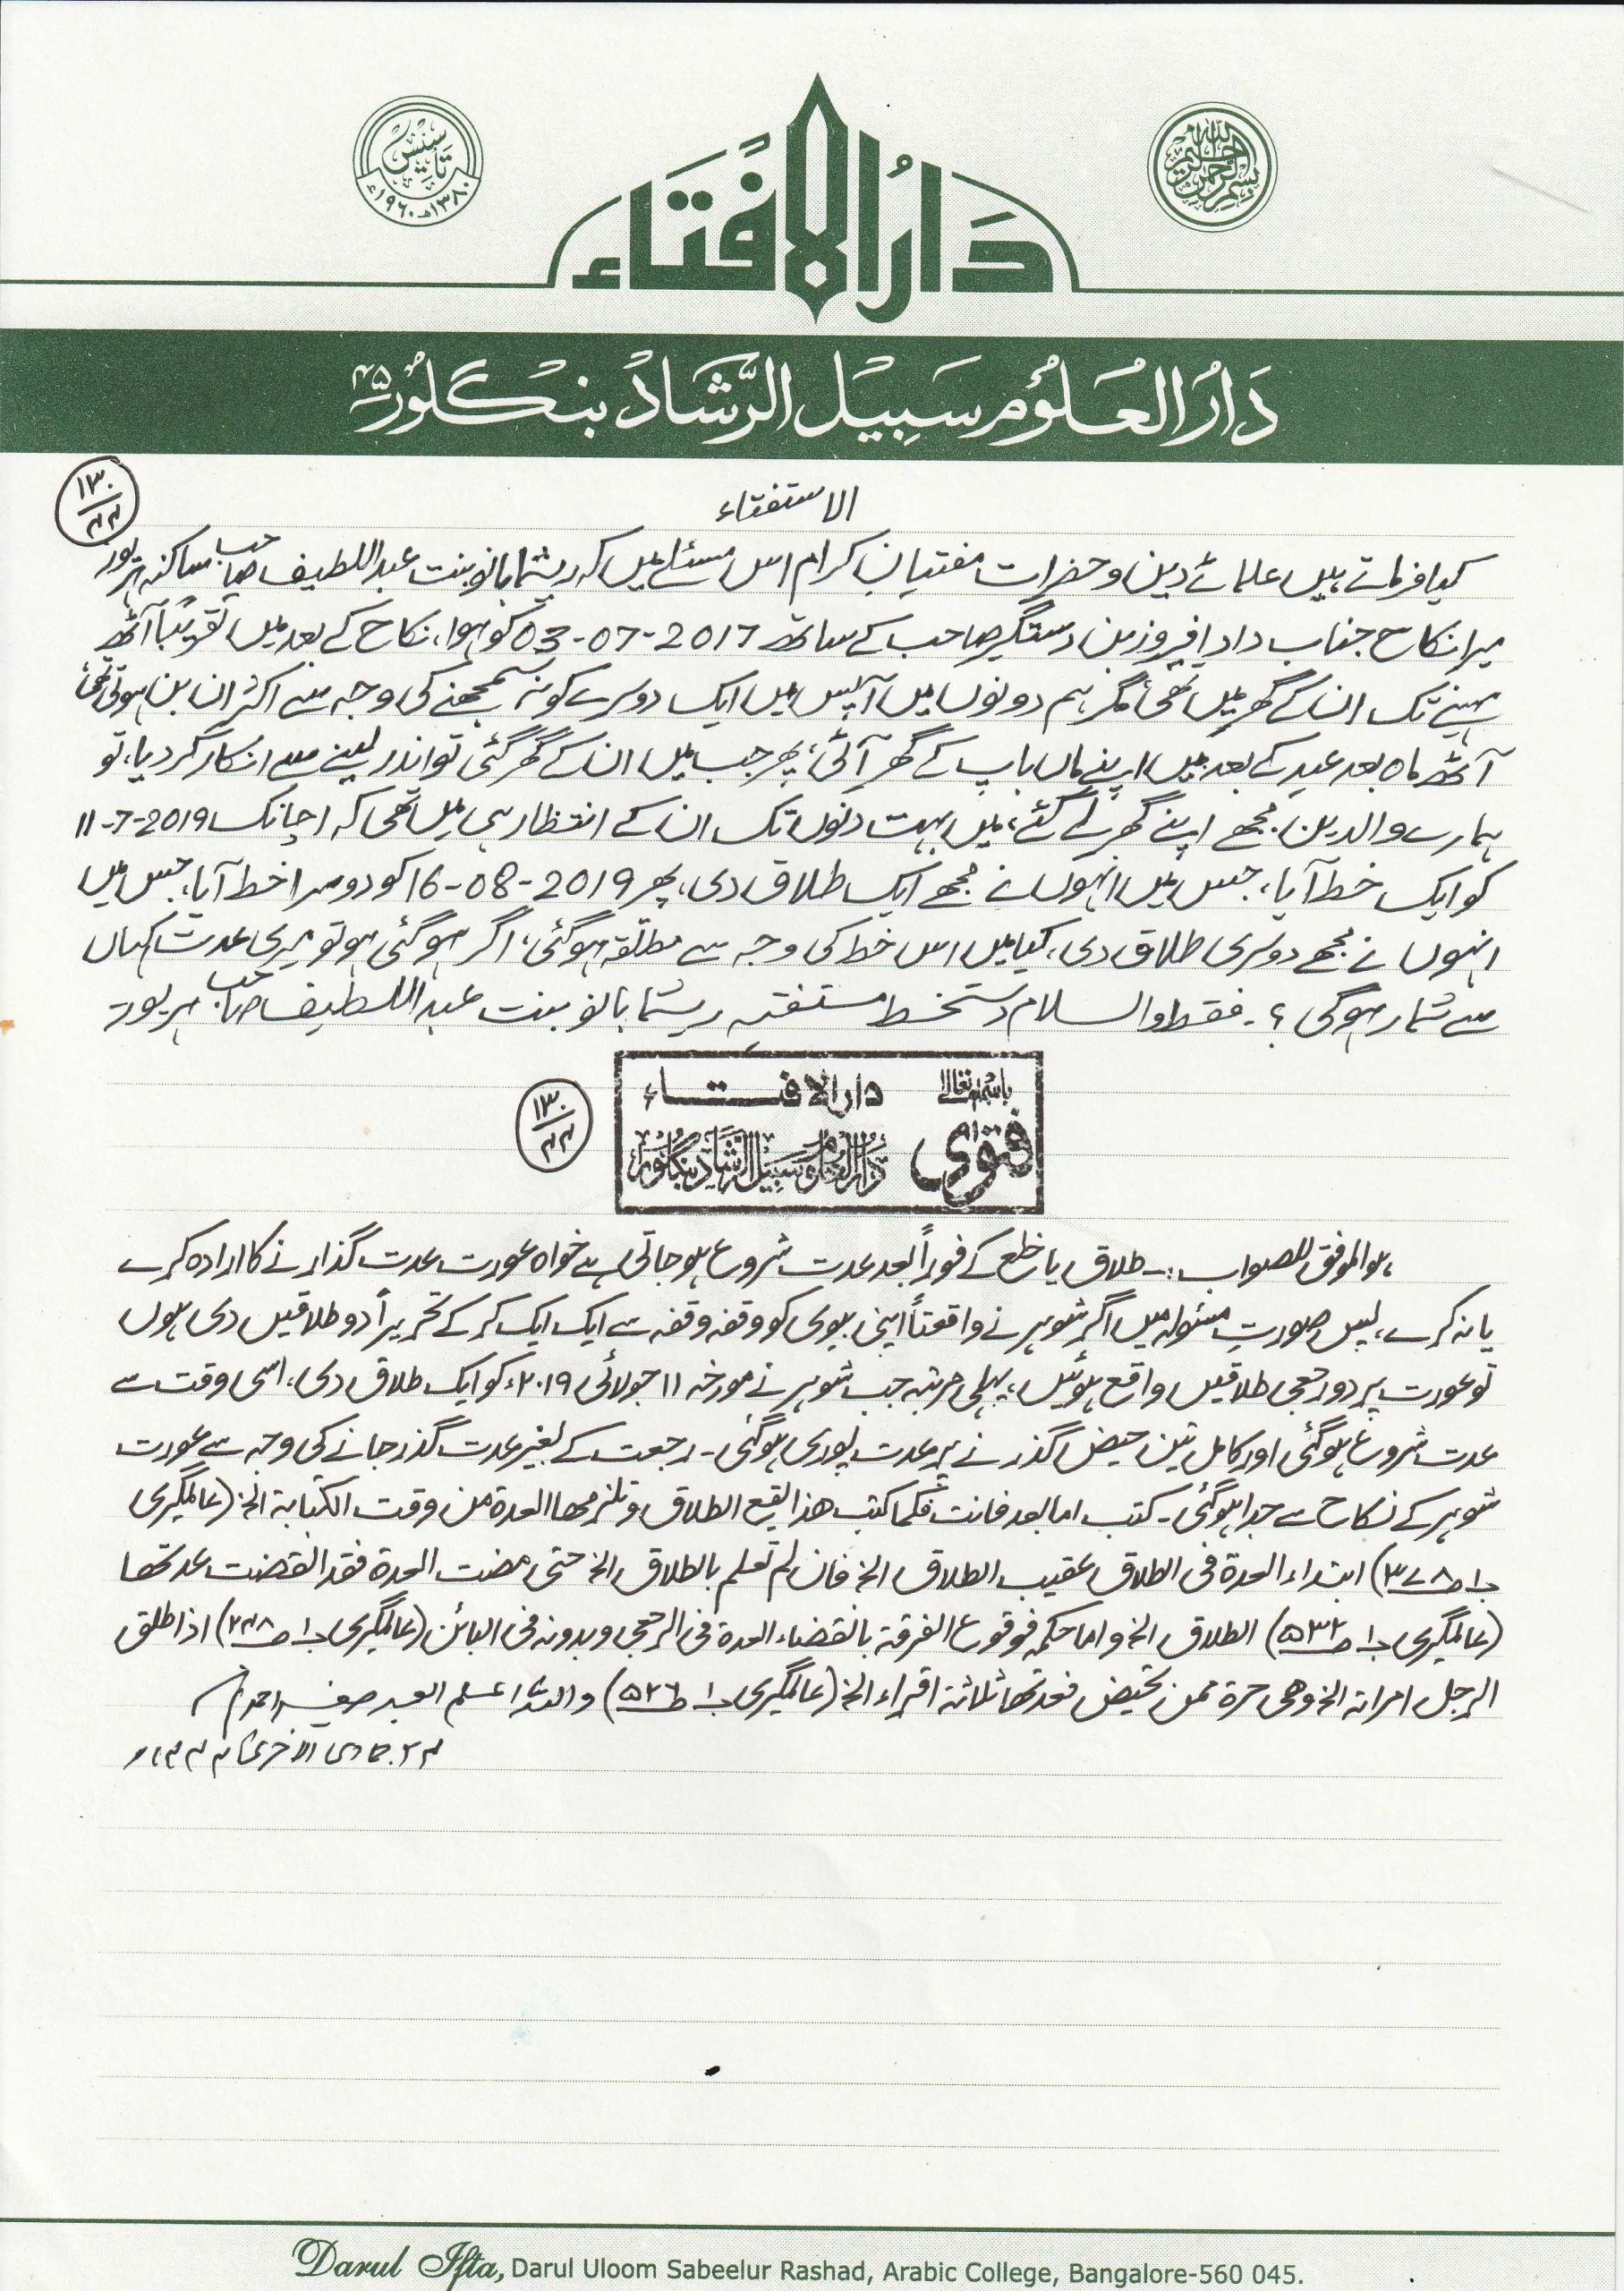 تأسيس
١٣٨٠ھ ١٩٦٠ء
دَارُ الافْتَاء
بسم الله الرحمن الرحيم
دَارُ العُلُوم سَبِيْل الرَّشَاد بنگلُور ۴۵
۱۳۰
۴۴
الاستفتاء
کیا فرماتے ہیں علمائے دین و حضرات مفتیان کرام اس مسئلے میں کہ ریشما بانو بنت عبد اللطیف صاحب ساکنہ ہرپور
میرا نکاح جناب دادا فیروز بن دستگیر صاحب کے ساتھ 2017-07-03 کو ہوا، نکاح کے بعد میں تقریباً آٹھ
مہینے تک ان کے گھر میں تھی، مگر ہم دونوں میں آپس میں ایک دوسرے کو نہ سمجھنے کی وجہ سے اکثر ان بن ہوتی تھی،
آٹھ ماہ بعد عید کے بعد میں اپنے ماں باپ کے گھر آئی، پھر جب میں ان کے گھر گئی تو اندر لینے سے انکار کردیا، تو
ہمارے والدین مجھے اپنے گھر لے گئے، میں بہت دنوں تک ان کے انتظار ہی میں تھی کہ اچانک 2019-7-11
کو ایک خط آیا، جس میں انہوں نے مجھے ایک طلاق دی، پھر 2019-08-16 کو دوسرا خط آیا، جس میں
انہوں نے مجھے دوسری طلاق دی، کیا میں اس خط کی وجہ سے مطلقہ ہوگئی، اگر ہوگئی ہو تو میری عدت کہاں
سے شمار ہوگی؟۔ فقط والسلام دستخط مستفتیہ ریشما بانو بنت عبد اللطیف صاحب ہرپور
۱۳۰
۴۴
باسمہ تعالیٰ
دار الافتاء
فتویٰ
دَارُ العُلُوم سَبِيْل الرَّشَاد بنگلور
ہو الموفق للصواب:۔ طلاق یا خلع کے فوراً بعد عدت شروع ہوجاتی ہے خواہ عورت عدت گذارنے کا ارادہ کرے
یا نہ کرے، پس صورتِ مسئولہ میں اگر شوہر نے واقعتاً اپنی بیوی کو وقفہ وقفہ سے ایک ایک کرکے تحریراً دو طلاقیں دی ہوں
تو عورت پر دو رجعی طلاقیں واقع ہوئیں، پہلی مرتبہ جب شوہر نے مورخہ ۱۱ جولائی ۲۰۱۹ء کو ایک طلاق دی، اسی وقت سے
عدت شروع ہوگئی اور کامل تین حیض گذرنے پر عدت پوری ہوگئی۔ رجعت کے بغیر عدت گذر جانے کی وجہ سے عورت
شوہر کے نکاح سے جدا ہوگئی۔ کتب اما بعد فانت فکما کتب هذا یقع الطلاق وتلزمها العدة من وقت الکتابة الخ (عالمگیری
جا ص ۳۷۸) ابتداء العدة فی الطلاق عقیب الطلاق الخ فان لم تعلم بالطلاق الخ حتی مضت العدة فقد انقضت عدتها
(عالمگیری جا ص ۵۳۲) الطلاق الخ واما حکمه فوقوع الفرقة بانقضاء العدة فی الرجعی وبدونه فی البائن (عالمگیری جا ص ۳۴۸) اذا طلق
الرجل امراته الخ وهی حرة ممن تحیض فعدتها ثلاثة اقراء الخ (عالمگیری جا ص ۵۲۶) واللہ اعلم العبد صغیر احمد
۲۴ جمادی الاخریٰ ۱۴۴۴ھ
Darul Ifta, Darul Uloom Sabeelur Rashad, Arabic College, Bangalore-560 045.